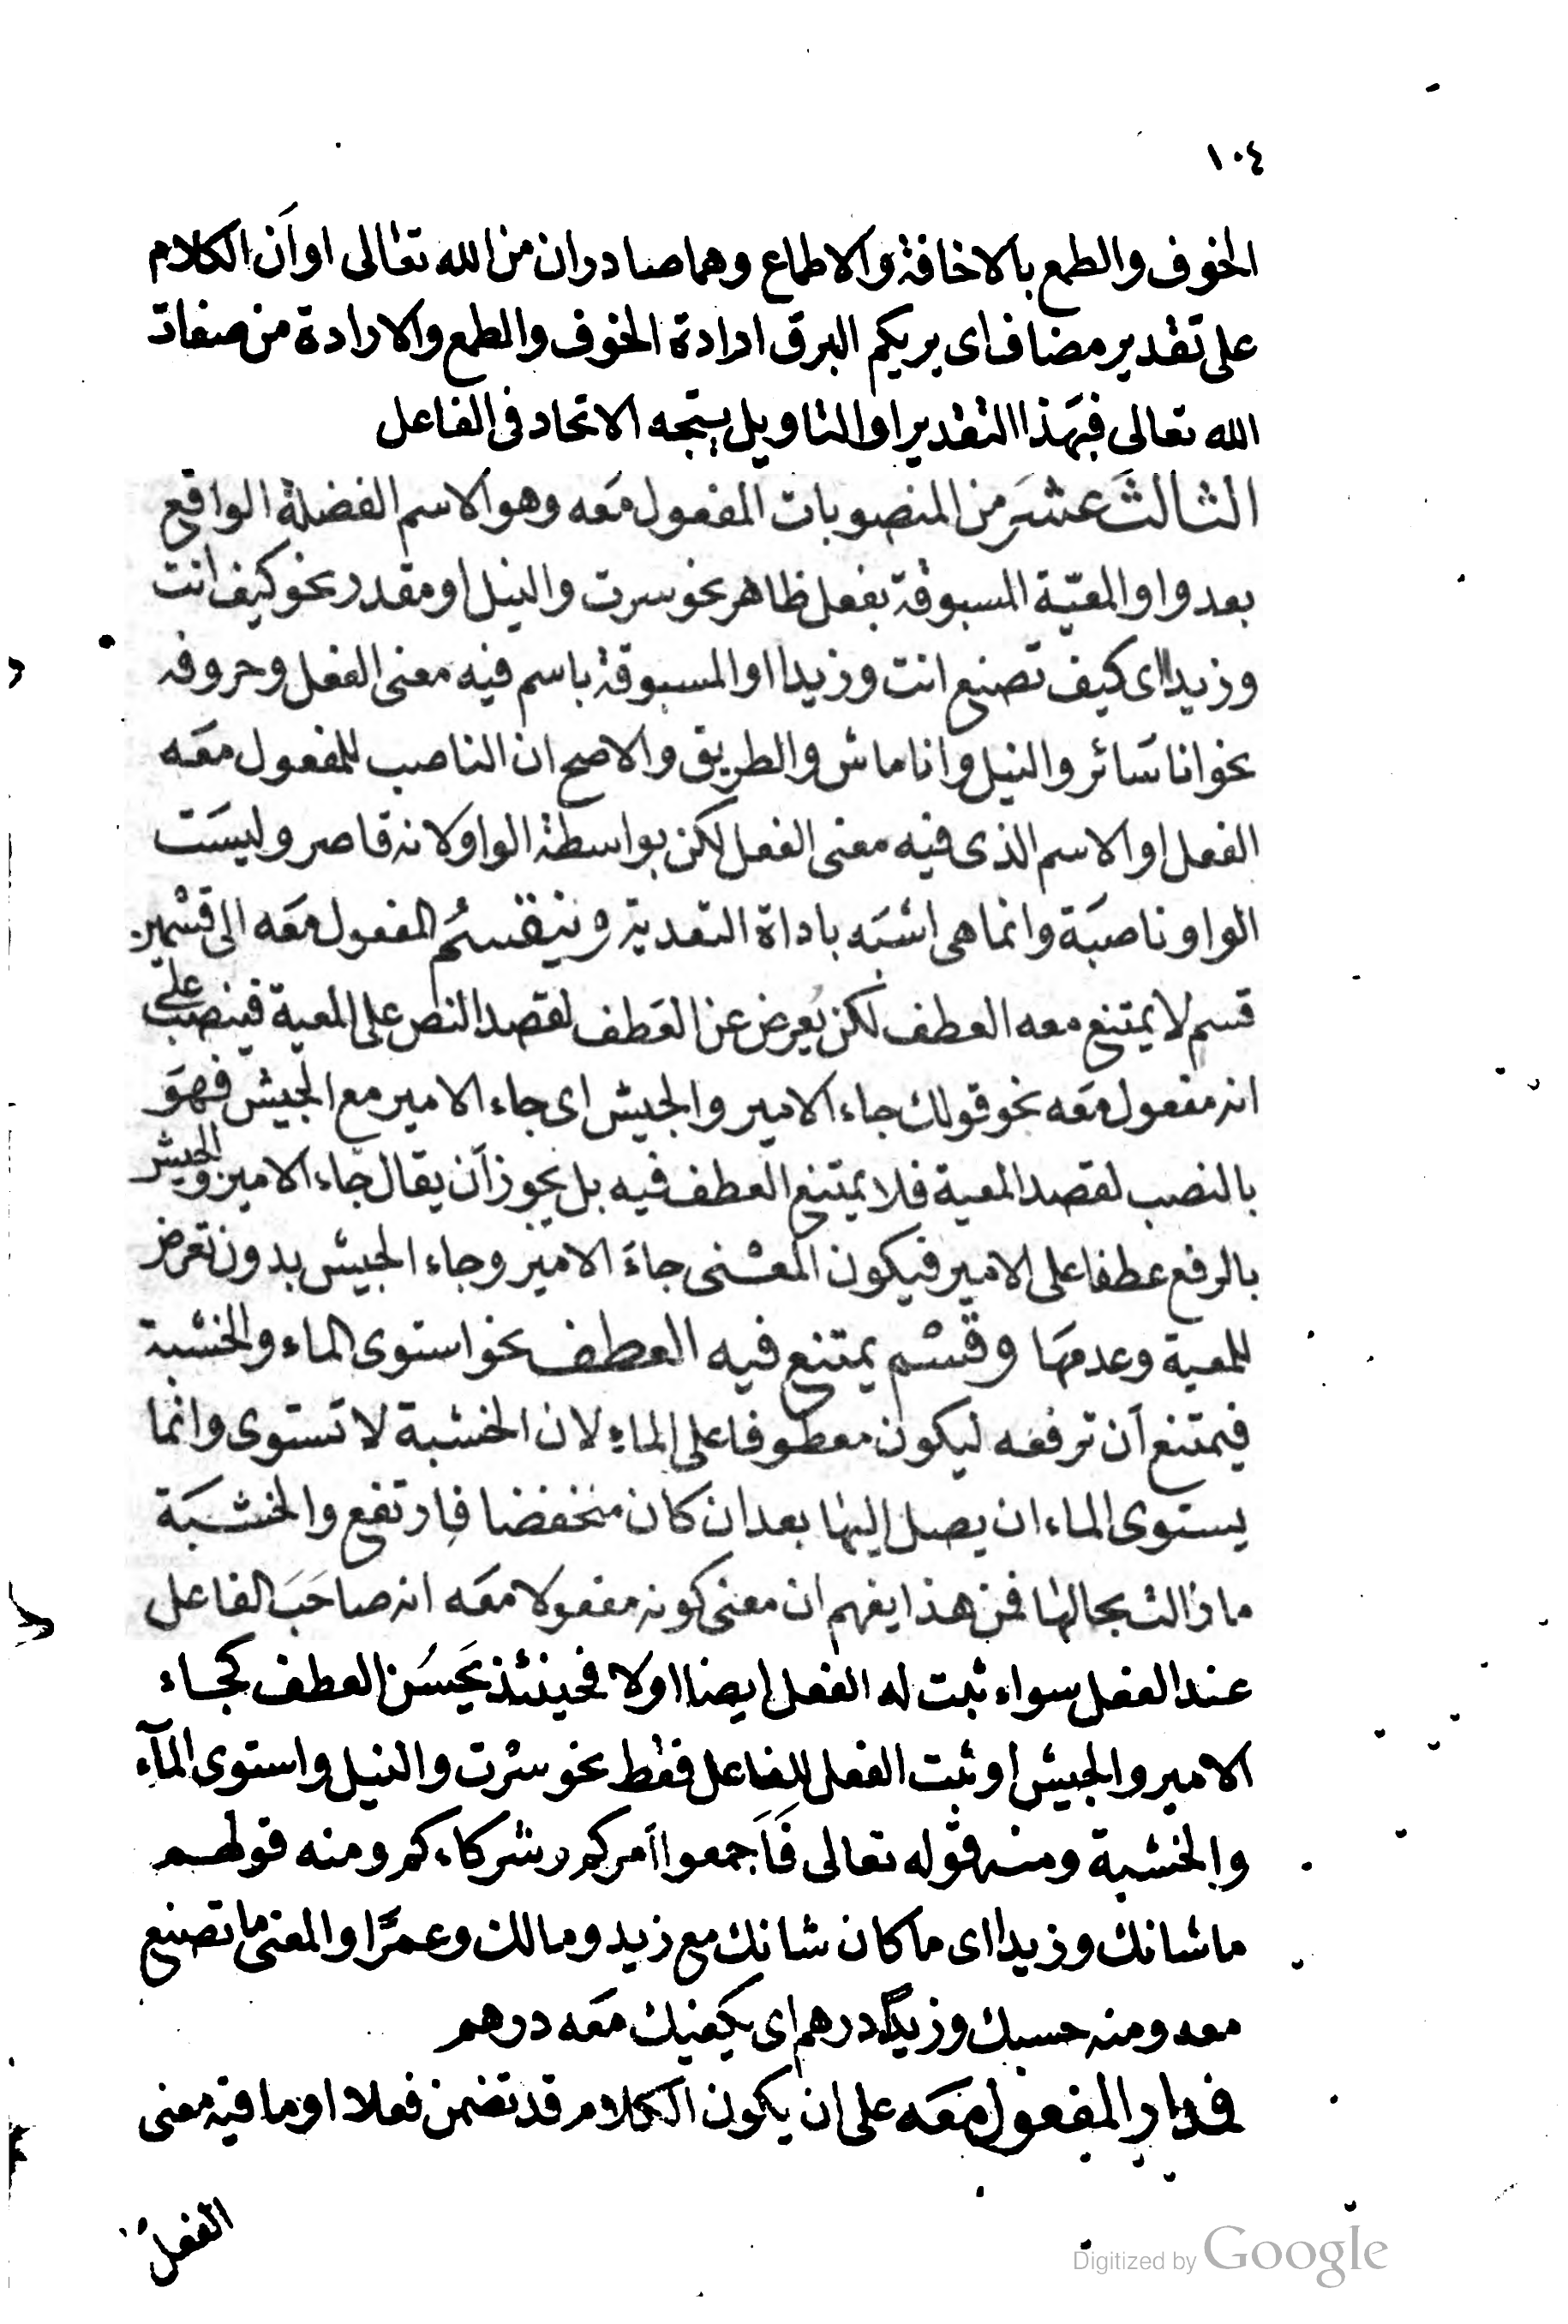 ١٠٤
الخوف والطمع بالاخافة والاطماع وهما صادران من الله تعالى او اَن الكلام
على تقدير مضاف اى يريكم البرق ارادة الخوف والطمع والارادة من صفات
الله تعالى فبهذا التقدير او التاويل يتجه الاتحاد فى الفاعل
الثالثَ عشَر من المنصوبات المفعول مَعه وهو الاسم الفضلة الواقع
بعد واو المعيّة المسبوقة بفعل ظاهر نحو سرت والنيل او مقدر نحو كيف انت
وزيدا اى كيف تصنع انت وزيدا او المسبوقة باسم فيه معنى الفعل وحروفه
نحو انا سَائر والنيل وانا ماش والطريق والاصح ان الناصب للمفعول معَه
الفعل او الاسم الذى فيه معنى الفعل لكن بواسطة الواو لانه قاصر وليسَت
الواو ناصبَة وانما هى اشبَه باداة التعدية وينقسمُ المفعول مَعَه الى قسمين
قسم لا يمتنع معه العطف لكن يُعرض عن العَطف لقصد النص على المعية فينصب على
انه مفعول مَعَه نحو قولك جاء الامير والجيش اى جاء الامير مع الجيش فهوَ
بالنصب لقصد المعية فلا يمتنع العطف فيه بل يجوز اَن يقال جاء الامير والجيش
بالرفع عطفا على الامير فيكون المعْنى جاءَ الامير وجاء الجيش بدون تعرض
للمعية وعدمهَا وقسْم يمتنع فيه العطف نحو استوى الماء والخشبة
فيمتنع اَن ترفعه ليكون معطوفا على الماءِ لان الخشبة لا تستوى وانما
يستوى الماء ان يصل اليها بعد ان كان منخفضا فارتفع والخشبَة
ما زالت بحالها فمن هذا يفهم ان معنى كونه مفعولا معَه انه صاحَبَ الفاعل
عند الفعل سواء ثبت له الفعل ايضا اولا فحينئذ يَحسُن العطف كجاء
الامير والجيش او ثبت الفعل للفاعل فقط نحو سرْت والنيل واستوى المآء
والخشبة ومنه قوله تعالى فَاَجمعوا اَمركم وشركاءكم ومنه قولهم
ما شانك وزيدا اى ما كان شانك مع زيد ومالك وعمرًا والمعنى ما تصنع
معه ومنه حسبك وزيدًا درهم اى يكفيك مَعَه درهم
فمدار المفعول مَعَه على ان يكون الكلام قد تضمن فعلا او ما فيه معنى
الفعل
Digitized by Google